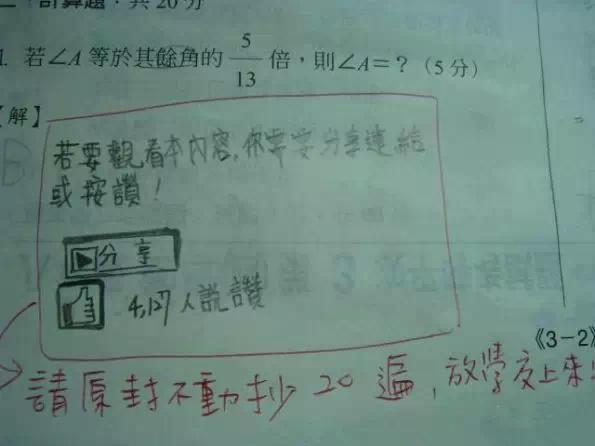 二、計算題：共20分
1. 若∠A 等於其餘角的 5/13 倍，則∠A＝？（5分）
【解】
若要觀看本內容，你要分享連結
或按讚！
分享
4,127人說讚
《3-2》
請原封不動抄20遍，放學交上來